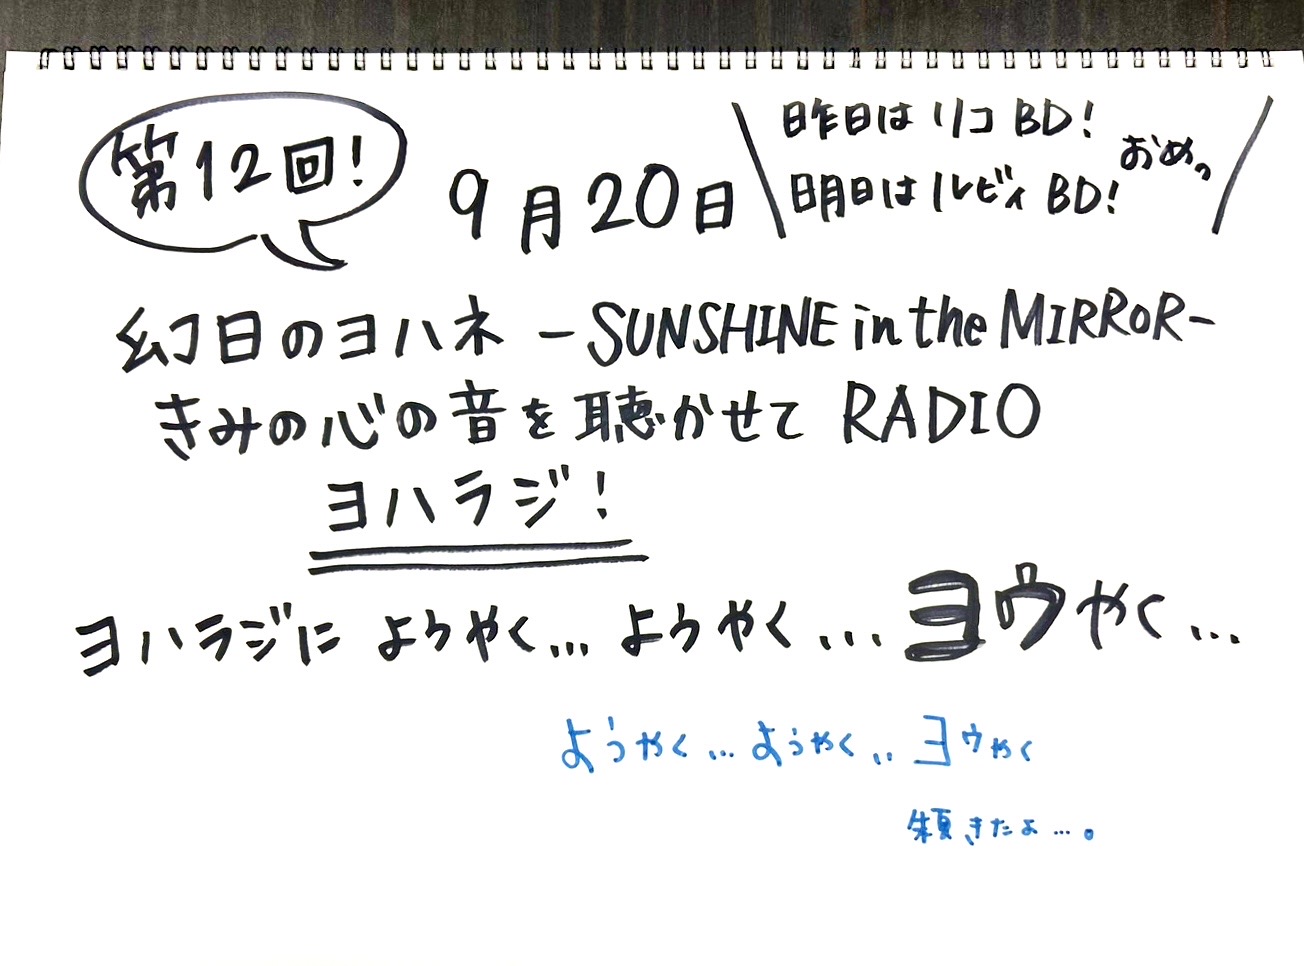 第12回!
9月20日
昨日はリコBD!
明日はルビィBD!
おめっ
幻日のヨハネ -SUNSHINE in the MIRROR-
きみの心の音を聴かせて RADIO
ヨハラジ!
ヨハラジに ようやく… ようやく… ヨウやく…
ようやく…ようやく‥ヨウやく
きたよ…。